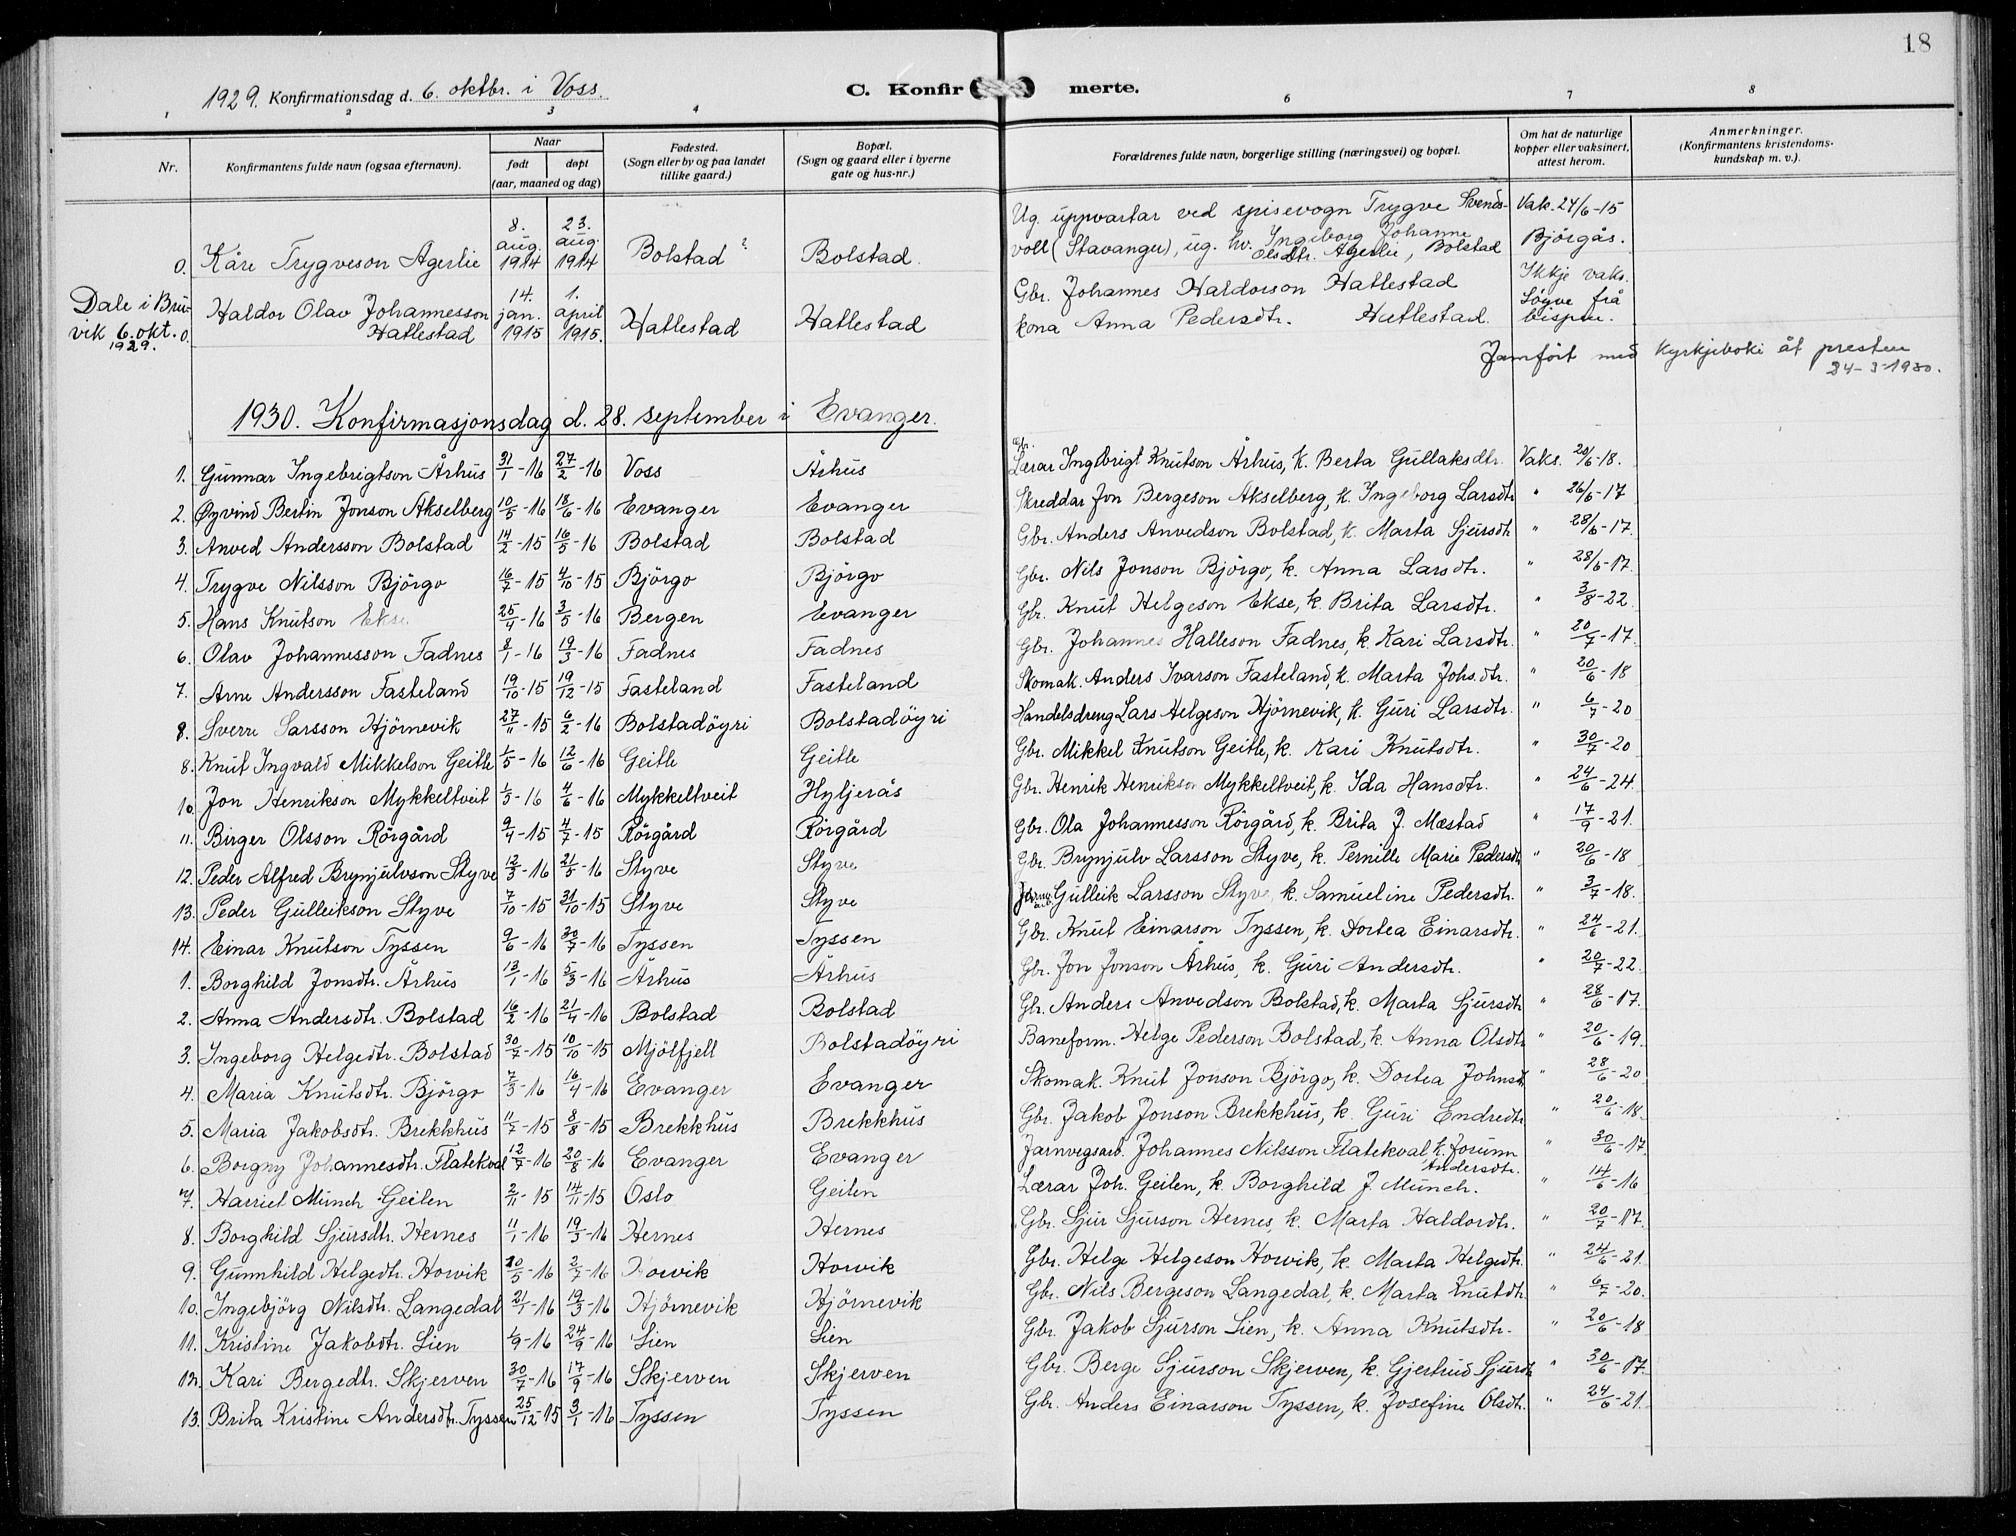 18
1929. Konfirmationsdag d. 6. oktbr. i Voss. C. Konfirmerte.
1 2 3 4 6 7 8
Nr. Konfirmantens fulde navn (ogsaa efternavn). Naar født døpt (aar, maaned og dag) Fødested. (Sogn eller by og paa landet tillike gaard.) Bopæl. (Sogn og gaard eller i byerne gate og hus-nr.) Forældrenes fulde navn, borgerlige stilling (næringsvei) og bopæl. Om hat de naturlige kopper eller vaksinert, attest herom. Anmerkninger. (Konfirmantens kristendoms-kundskap m. v.).
0. Kåre Trygveson Agerlie 8. aug. 1914 23. aug. 1914 Bolstad ? Bolstad. Ug. uppvartar ved spisevogn Trygve Svends-voll (Stavanger), ug. hv. Ingeborg Johanne Olsdtr. Agerlie, Bolstad Vak. 24/6-15 Bjørgås.
Dale i Bru-vik 6. okt. 1929. 0. Haldor Olav Johannesson Hatlestad 14. jan. 1915 1. april 1915. Hatlestad Hatlestad Gbr. Johannes Haldorson Hatlestad kona Anna Pedersdtr. Hatlestad. Ikkje vaks. Løyve frå bispen.
Jamført med kyrkjeboki åt presten 24-3-1930.
1930. Konfirmasjonsdag d. 28. september i Evanger.
1. Gunnar Ingebrigtson Århus 31/1-16 27/2-16 Voss Århus Gbr. Lærar Ingebrigt Knutson Århus, k. Berta Gullaksdtr. Vaks. 20/6-18.
2. Øyvind Bertin Jonson Akselberg 10/5-16 18/6-16 Evanger Evanger Skreddar Jon Bergeson Akselberg, k. Ingeborg Larsdtr " 26/6-17
3. Anved Andersson Bolstad 14/2-15 16/5-16 Bolstad Bolstad Gbr. Anders Anvedson Bolstad, k. Marta Sjursdtr " 28/6-17.
4. Trygve Nilsson Bjørgo 16/7-15 4/10-15 Bjørgo Bjørgo Gbr. Nils Jonson Bjørgo, k. Anna Larsdtr. " 28/6-17.
5. Hans Knutson Ekse 25/4-16 3/5-16 Bergen Evanger Gbr. Knut Helgeson Ekse, k. Brita Larsdtr. " 3/8-22
6. Olav Johannesson Fadnes 8/1-16 19/3-16 Fadnes Fadnes Gbr. Johannes Halleson Fadnes, k. Kari Larsdtr. " 20/7-17.
7. Arne Andersson Fasteland 19/10-15 19/12-15 Fasteland Fasteland Skomak. Anders Ivarson Fasteland, k. Marta Johs.dtr. " 20/6-18
8. Sverre Larsson Hjørnevik 27/11-15 6/2-16 Bolstadøyri Bolstadøyri Handelsdreng Lars Helgeson Hjørnevik, k. Guri Larsdtr. " 6/7-20
8. Knut Ingvald Mikkelson Geitle 1/5-16 12/6-16 Geitle Geitle Gbr. Mikkel Knutson Geitle, k. Kari Knutsdtr. " 30/7-20
10. Jon Henrikson Mykkeltveit 1/3-16 4/6-16 Mykkeltveit Hyljerås Gbr. Henrik Henrikson Mykkeltveit, k. Ida Hansdtr. " 24/6-24.
11. Birger Olsson Rørgård 9/4-15 4/7-15 Rørgård Rørgård Gbr. Ola Johannesson Rørgård, k. Brita J. Mæstad " 17/9-21.
12. Peder Alfred Brynjulvson Styve 12/3-16 21/5-16 Styve Styve Gbr. Brynjulv Larsson Styve, k. Pernille Marie Pedersdtr " 20/6-18
13. Peder Gulleikson Styve 7/10-15 31/10-15 Styve Styve Gulleik Larsson Styve, k. Samueline Pedersdtr. " 3/7-18.
14. Einar Knutson Tyssen 9/6-16 30/7-16 Tyssen Tyssen Gbr. Knut Einarson Tyssen, k. Dortea Einarsdtr. " 24/6-21.
1. Borghild Jonsdtr. Århus 13/1-16 5/3-16 Århus Århus Gbr. Jon Jonson Århus, k. Guri Andersdtr. " 20/7-22.
2. Anna Andersdtr. Bolstad 16/2-16 21/4-16 Bolstad Bolstad Gbr. Anders Anvedson Bolstad, k. Marta Sjursdtr " 28/6-17.
3. Ingeborg Helgedtr. Bolstad 30/7-15 10/10-15 Mjølfjell Bolstadøyri Baneform. Helge Pederson Bolstad, k. Anna Olsdtr " 20/6-19.
4. Maria Knutsdtr. Bjørgo 7/3-16 16/4-16 Evanger Evanger Skomak. Knut Jonson Bjørgo, k. Dortea Johnsd. " 28/6-20.
5. Maria Jakobsdtr. Brekkhus 11/7-15 8/8-15 Brekkhus Brekkhus Gbr. Jakob Jonson Brekkhus, k. Guri Endredtr " 20/6-18.
6. Borgny Johannesdtr. Flatekval 12/7-16 20/8-16 Evanger Evanger Jarnvegsarb. Johannes Nilsson Flatekval k. Jorunn Andersdtr. " 30/6-17.
7. Harriet Münch Geilen 2/11-15 14/11-15 Oslo Geilen Lærar Joh. Geilen, k. Borghild J. Münch. " 14/6-16
8. Borghild Sjursdtr. Hernes 11/1-16 19/3-16 Hernes Hernes Gbr. Sjur Sjurson Hernes, k. Marta Haldordtr. " 20/7-17.
9. Gunnhild Helgedtr. Horvik 20/5-16 2/7-16 Horvik Horvik Gbr. Helge Helgeson Horvik, k. Marta Helgedtr. " 24/6-21.
10. Ingebjørg Nilsdtr. Langedal 21/1-16 19/3-16 Hjørnevik Hjørnevik Gbr. Nils Bergeson Langedal, k. Marta Knutdtr " 6/7-20.
11. Kristine Jakobdtr. Lien 1/9-16 24/9-16 Lien Lien Gbr. Jakob Sjurson Lien, k. Anna Knutsdtr. " 20/6-18
12. Kari Bergedtr. Skjerven 30/7-16 17/9-16 Skjerven Skjerven Gbr. Berge Sjurson Skjerven, k. Gjertrud Sjurdtr " 30/6-17.
13. Brita Kristine Andersdtr. Tyssen 25/12-15 3/1-16 Tyssen Tyssen Gbr. Anders Einarson Tyssen, k. Josefine Olsdtr. " 24/6-21.